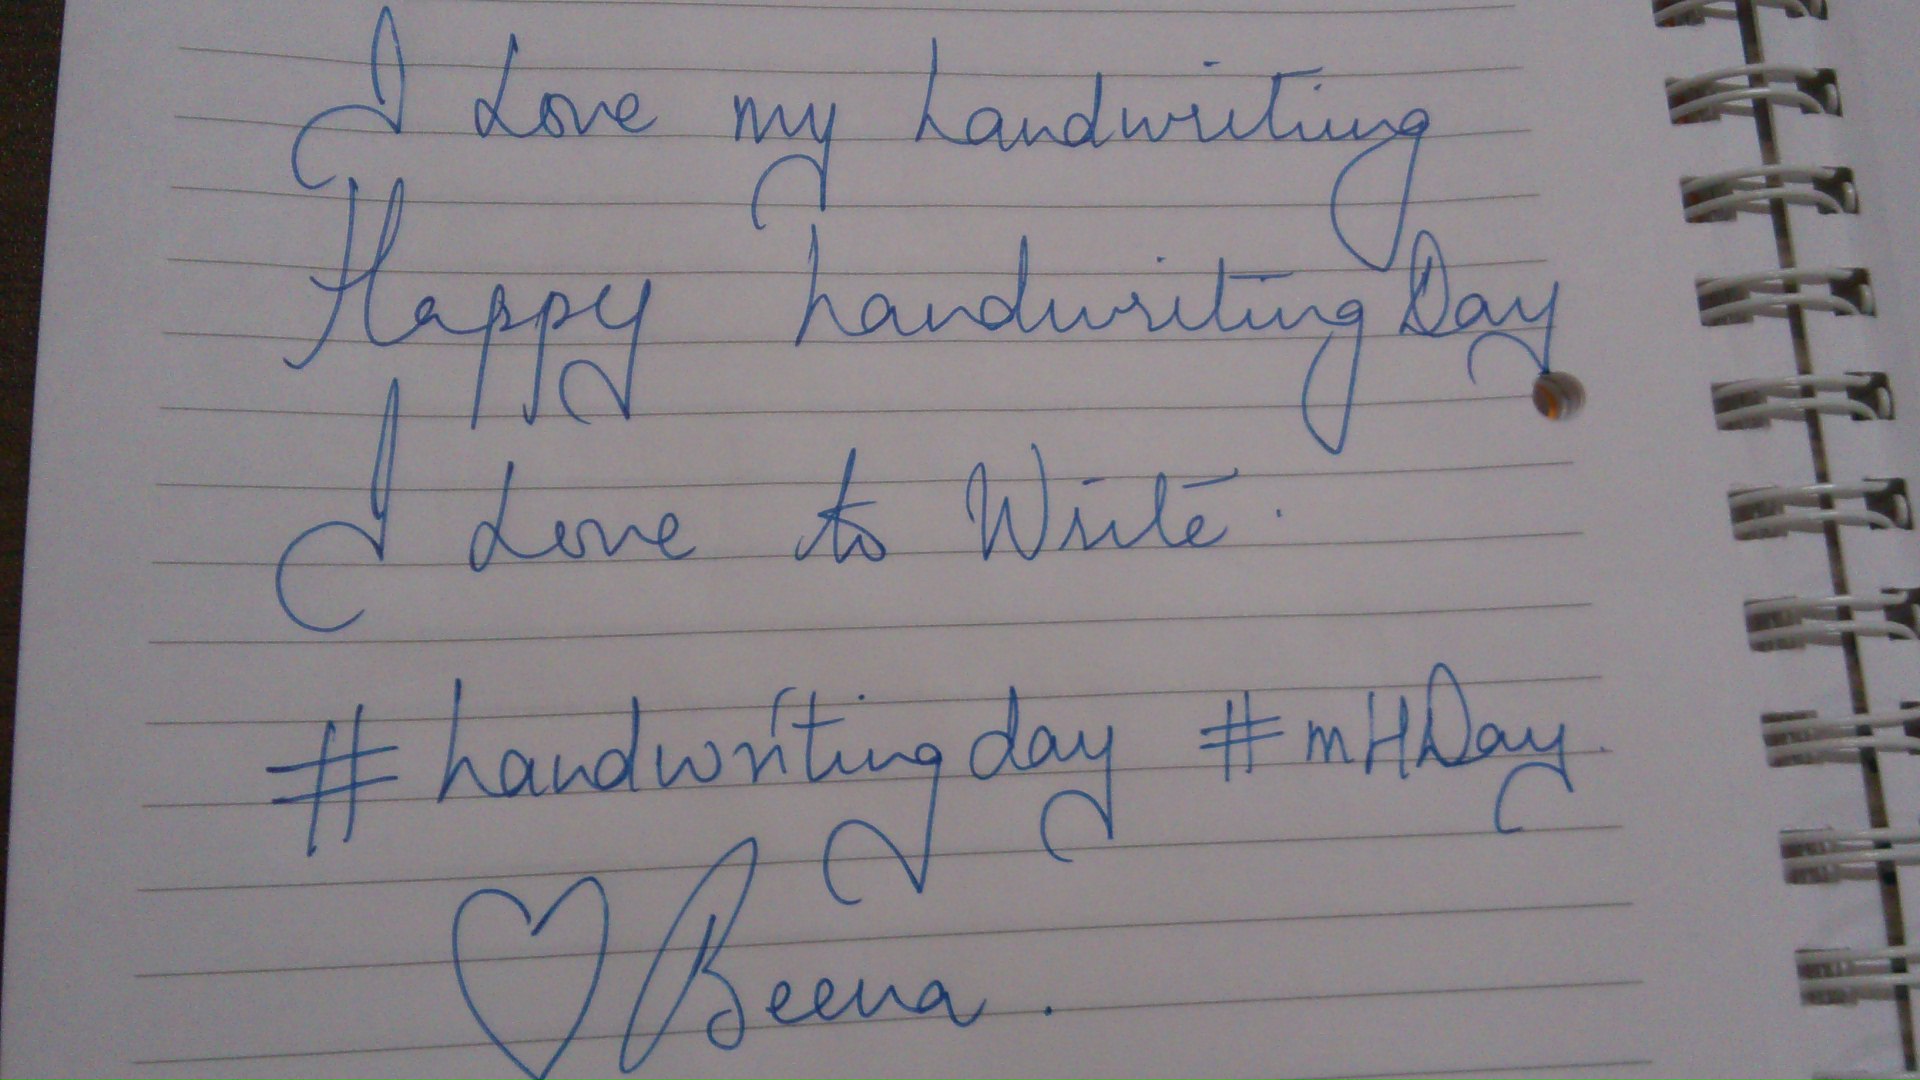 I Love my handwriting
Happy handwriting Day
I Love to Write.
#handwritingday #mHDay.
♡ Beena.